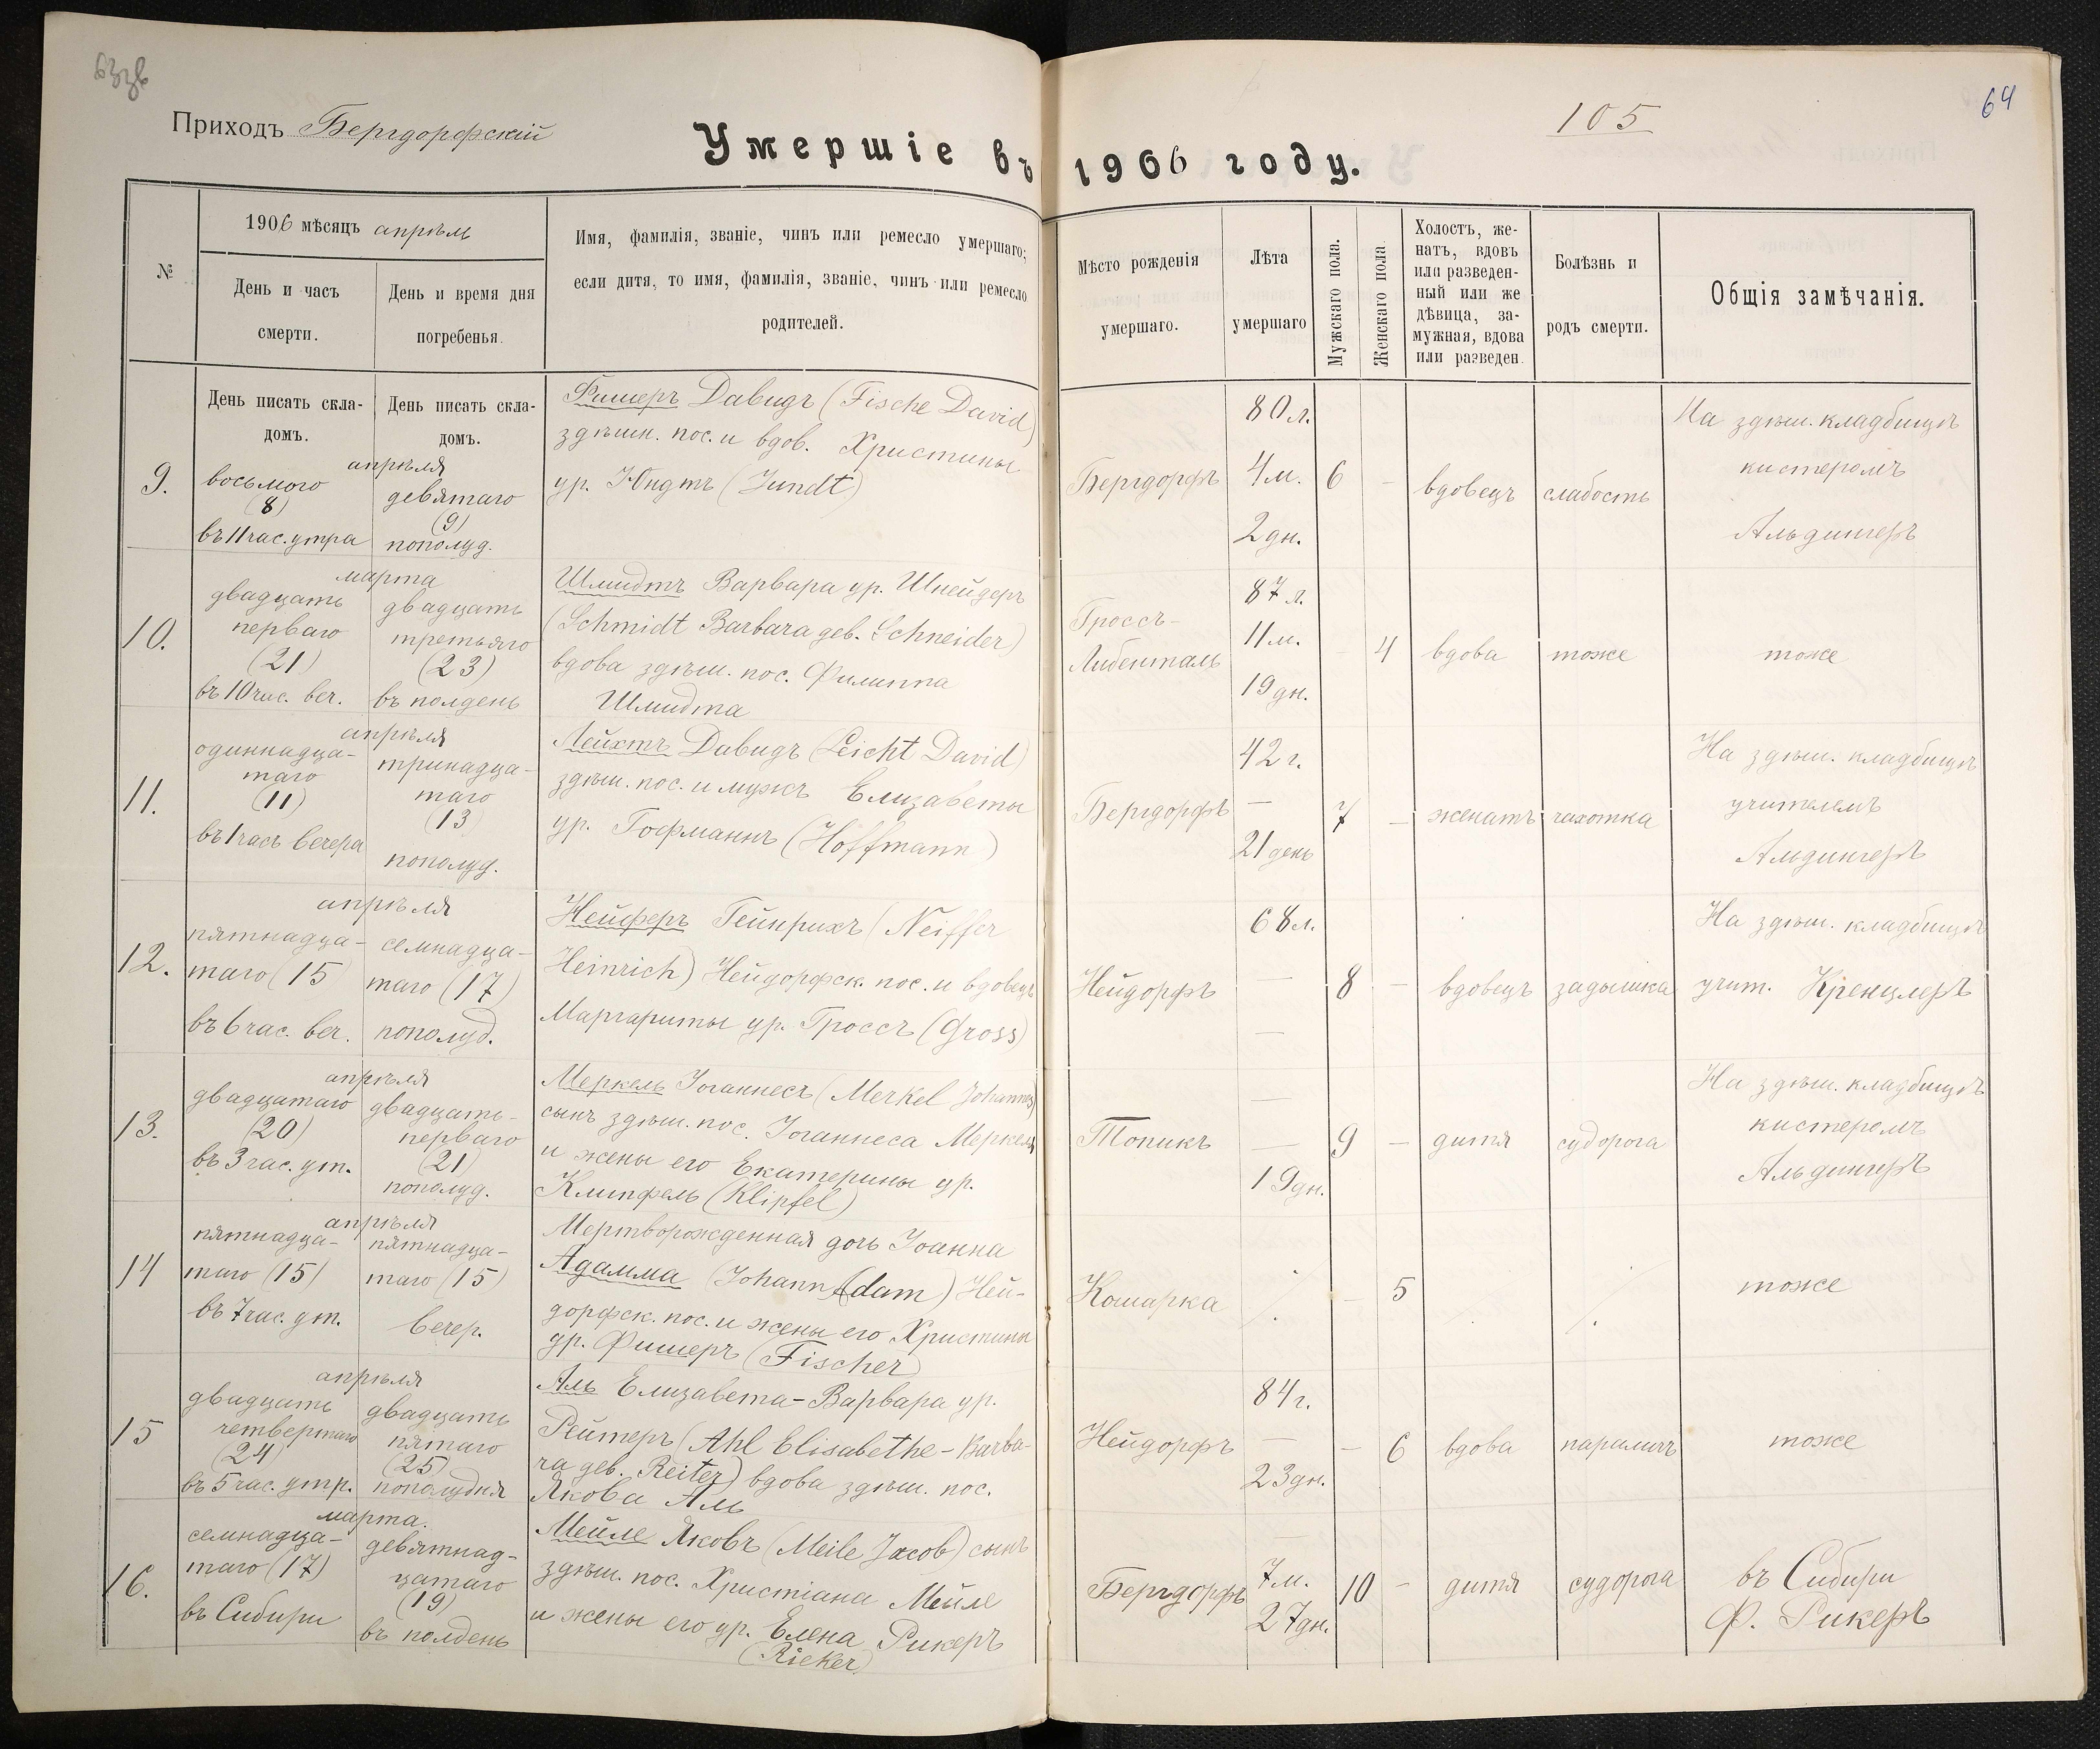 633в
Приходъ Бергдорфскій
Умершіе въ 1906 году.
105
64
№
1906 мѣсяцъ апрѣль
День и часъ
смерти.
День и время дня
погребенья.
Имя, фамилія, званіе, чинъ или ремесло умершаго;
если дитя, то имя, фамилія, званіе, чинъ или ремесло
родителей.
Мѣсто рожденія
умершаго.
Лѣта
умершаго
Мужскаго пола.
Женскаго пола.
Холостъ, же-
натъ, вдовъ
или разведен-
ный или же
дѣвица, за-
мужная, вдова
или разведен.
Болѣзнь и
родъ смерти.
Общія замѣчанія.
День писать скла-
домъ.
День писать скла-
домъ.
9.
апрѣля
восьмого
(8)
въ 11 час. утра
девятаго
(9)
пополуд.
Фишеръ Давидъ (Fische David)
здѣшн. пос. и вдов. Христины
ур. Юндтъ (Jundt)
Бергдорфъ
80 л.
4 м.
2 дн.
6
-
вдовецъ
слабость
На здѣш. кладбищѣ
кистеромъ
Альдингеръ
10.
марта
двадцать
перваго
(21)
въ 10 час. веч.
двадцать
третьяго
(23)
въ полдень
Шмидтъ Варвара ур. Шнейдеръ
(Schmidt Barbara geb. Schneider)
вдова здѣш. пос. Филиппа
Шмидта
Гроссъ-
Либенталь
87 л.
11 м.
19 дн.
-
4
вдова
тоже
тоже
11.
апрѣля
одиннадца-
таго
(11)
въ 1 часъ вечера
тринадца-
таго
(13)
пополуд.
Лейхтъ Давидъ (Leicht David)
здѣш. пос. и мужъ Елизаветы
ур. Гофманнъ (Hoffmann)
Бергдорфъ
42 г.
—
21 день
7
-
женатъ
чахотка
На здѣш. кладбищѣ
учителемъ
Альдингеръ
12.
апрѣля
пятнадца-
таго (15
въ 6 час. веч.
семнадца-
таго (17)
пополуд.
Нейферъ Гейнрихъ (Neiffer
Heinrich) Нейдорфск. пос. и вдовецъ
Маргариты ур. Гроссъ (Gross)
Нейдорфъ
68 л.
—
—
8
-
вдовецъ
задышка
На здѣш. кладбищѣ
учит. Кренцлеръ
13.
апрѣля
двадцатаго
(20)
въ 3 час. ут.
двадцать-
перваго
(21)
пополуд.
Меркель Іоганнесъ (Merkel Johannes)
сынъ здѣш. пос. Іоганнеса Меркель
и жены его Екатерины ур.
Клипфель (Klipfel)
Топикъ
—
—
19 дн.
9
-
дитя
судорога
На здѣш. кладбищѣ
кистеромъ
Альдингеръ
14
апрѣля
пятнадца-
таго (15)
въ 7 час. ут.
пятнадца-
таго (15)
вечер.
Мертворожденная дочь Іоанна
Адамма (Johann Adam) Ней-
дорфск. пос. и жены его Христины
ур. Фишеръ (Fischer)
Кошарка
-
5
тоже
15
апрѣля
двадцать
четвертаго
(24)
въ 5 час. утр.
двадцать
пятаго
(25)
пополудня
Аль Елизавета-Варвара ур.
Рейтеръ (Ahl Elisabethe-Barba-
ra geb. Reiter) вдова здѣш. пос.
Якова Аль
Нейдорфъ
84 г.
—
23 дн.
-
6
вдова
параличъ
тоже
16.
марта.
семнадца-
таго (17)
въ Сибири
девятнад-
цатаго
(19)
въ полдень
Мейле Яковъ (Meile Jacob) сынъ
здѣш. пос. Христіана Мейле
и жены его ур. Елена Рикеръ
(Rieker)
Бергдорфъ
7 м.
27 дн.
10
-
дитя
судорога
въ Сибири
Ф. Рикеръ